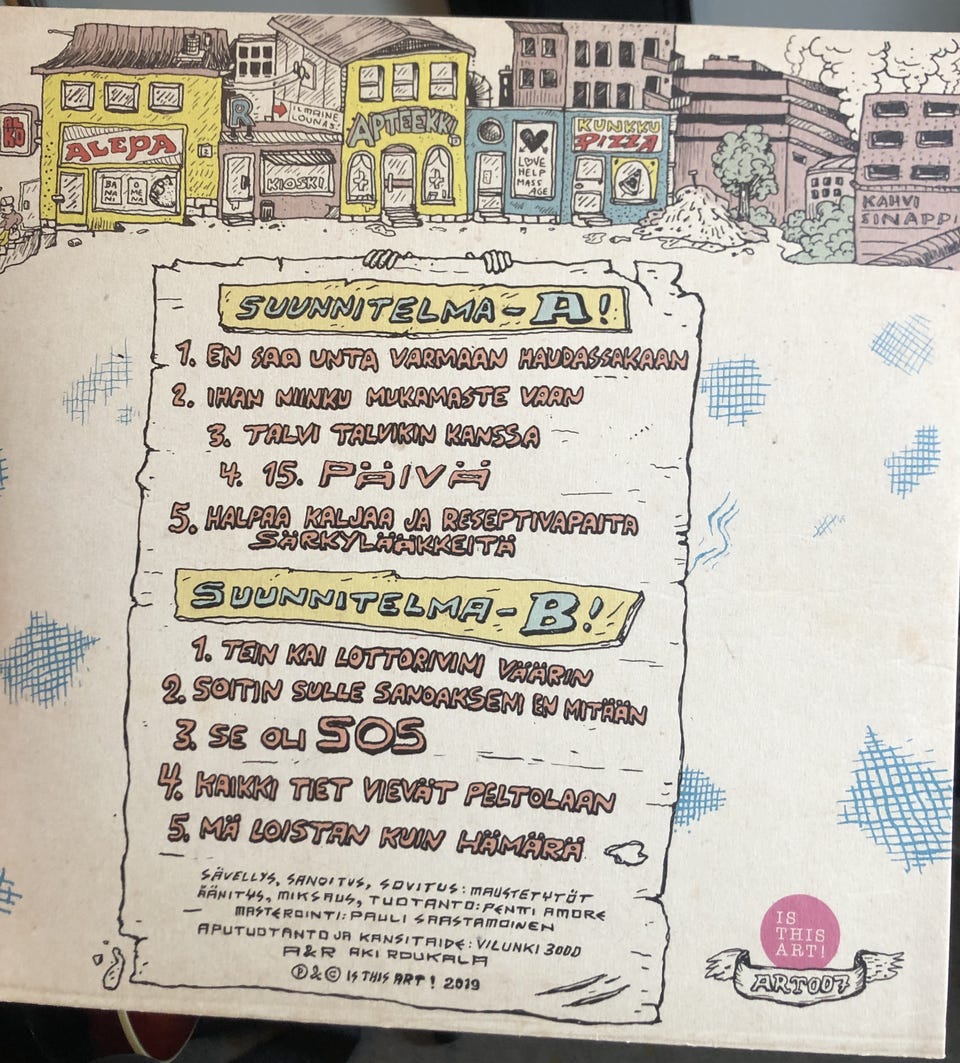 ALEPA
BA
NA
NI
O
ME
NA
R
ILMAINE
LOUNAS
KIOSKI
APTEEKKI
LOVE
HELP
MASS
AGE
KUNKKU
PIZZA
KAHVI
SINAPPI
SUUNNITELMA-A!
1. EN SAA UNTA VARMAAN HAUDASSAKAAN
2. IHAN NIINKU MUKAMASTE VAAN
3. TALVI TALVIKIN KANSSA
4. 15. PÄIVÄ
5. HALPAA KALJAA JA RESEPTIVAPAITA
SÄRKYLÄÄKKEITÄ
SUUNNITELMA-B!
1. TEIN KAI LOTTORIVINI VÄÄRIN
2. SOITIN SULLE SANOAKSENI EN MITÄÄN
3. SE OLI SOS
4. KAIKKI TIET VIEVÄT PELTOLAAN
5. MÄ LOISTAN KUIN HÄMÄRÄ
SÄVELLYS, SANOITUS, SOVITUS: MAUSTETYTÖT
ÄÄNITYS, MIKSAUS, TUOTANTO: PENTTI AMORE
MASTEROINTI: PAULI SAASTAMOINEN
APUTUOTANTO JA KANSITAIDE: VILUNKI 3000
A&R AKI ROUKALA
Ⓟ & © IS THIS ART! 2019
IS
THIS
ART!
ART007